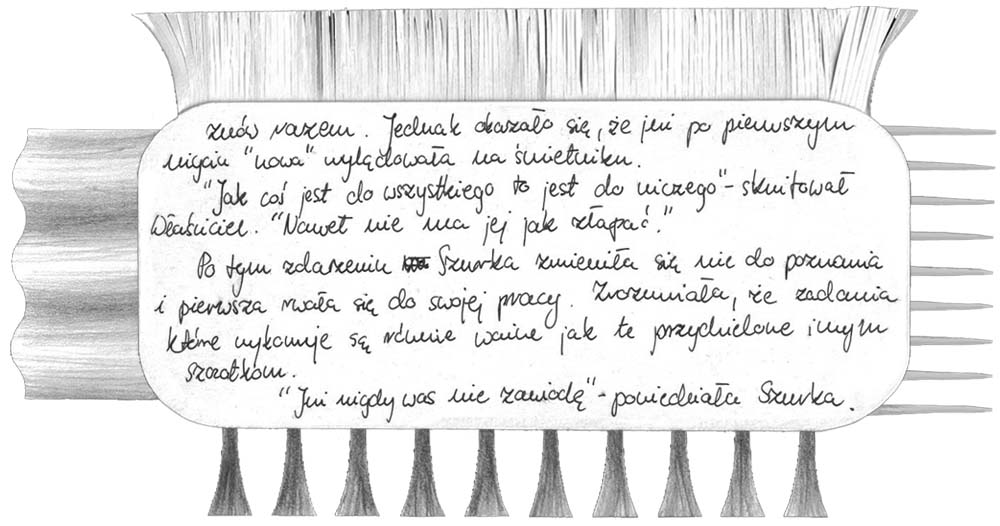 znów razem. Jednak okazało się, że już po pierwszym
mignięciu "nowa" wylądowała na śmietniku.
"Jak coś jest do wszystkiego to jest do niczego" - skwitował
Właściciel. "Nawet nie ma jej jak złapać."
Po tym zdarzeniu Szurka zmieniła się nie do poznania
i pierwsza rwała się do swojej pracy. Zrozumiała, że zadania
które wykonuje są równie ważne jak te przydzielone innym
szczotkom.
"Już nigdy was nie zawiodę" - powiedziała Szurka.